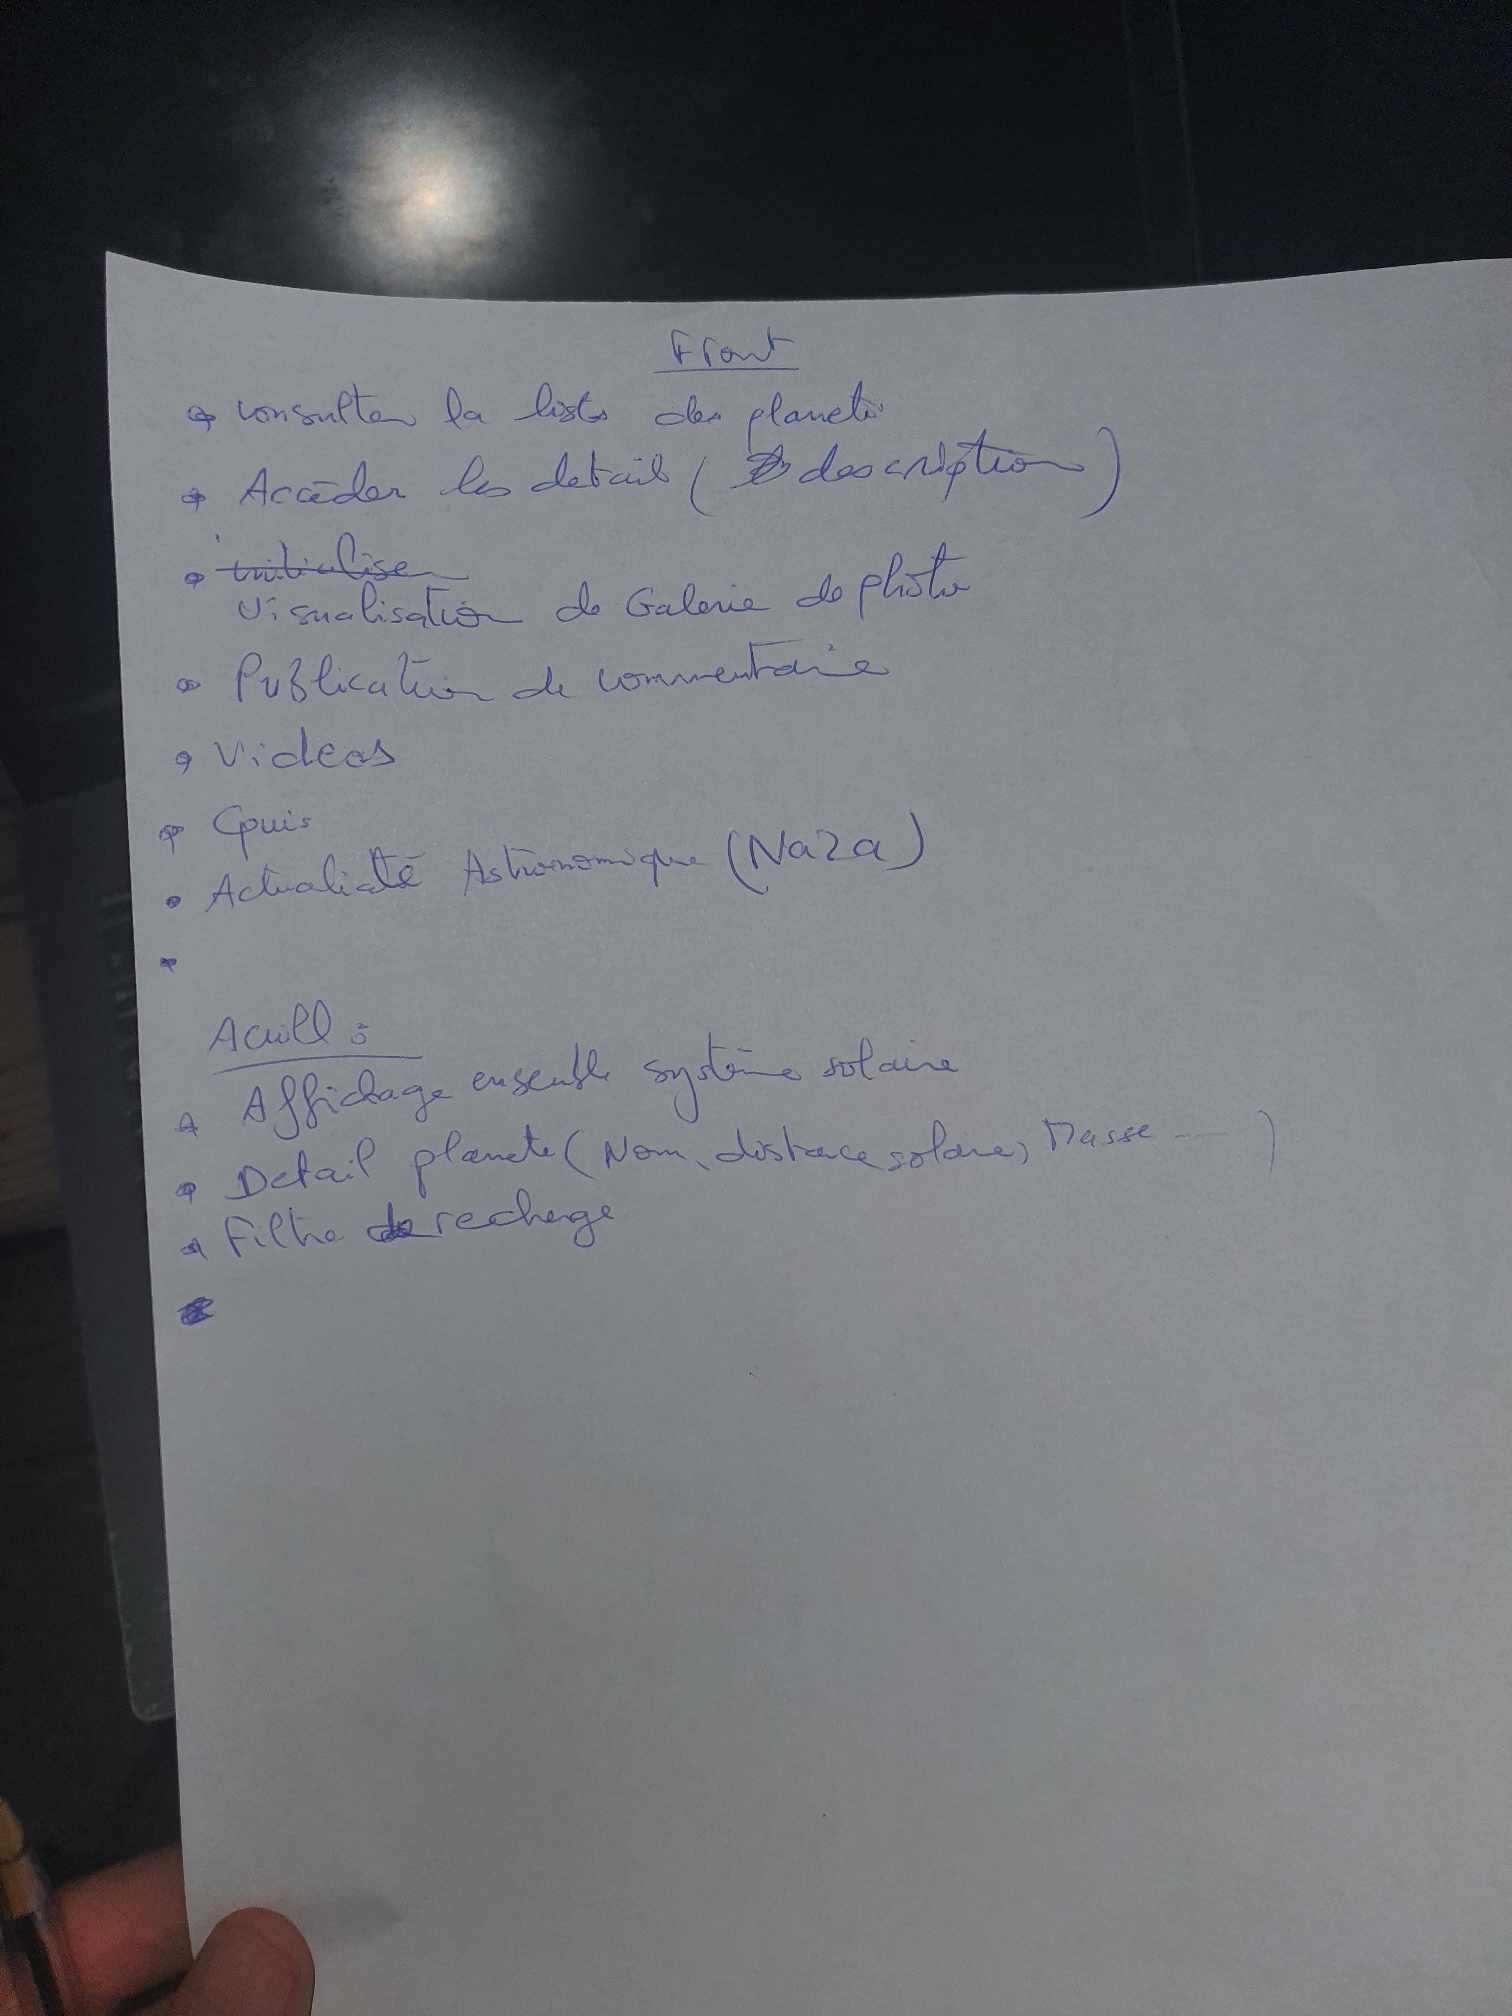 Front
consulter la liste des planete
Accéder les detail ( description )
Visualisation de Galerie de photo
Publication de commentaire
Videos
Quis
Actualiaté Astronomique (Naza)
Acuill :
Affichage ensemble système solaire
Detail planete (Nom, distance solaire, Masse ---- )
Filtre de recherge